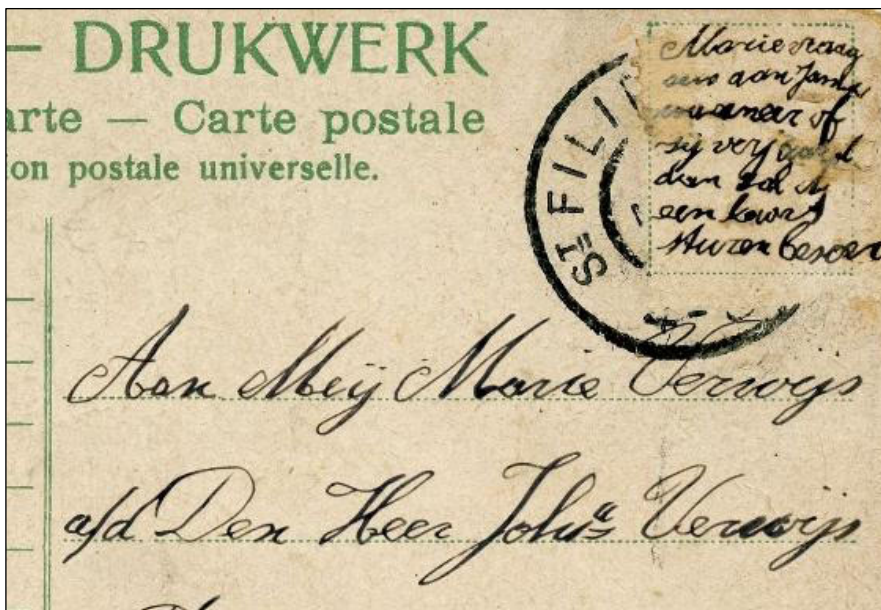 — DRUKWERK
arte — Carte postale
ion postale universelle.
Marie vraag
eens aan Jana
wanneer of
zij verjaard
dan zal ik
een kaart
sturen
ST FILI
Aan Meij Marie Verwijs
a/d Den Heer Johs Verwijs